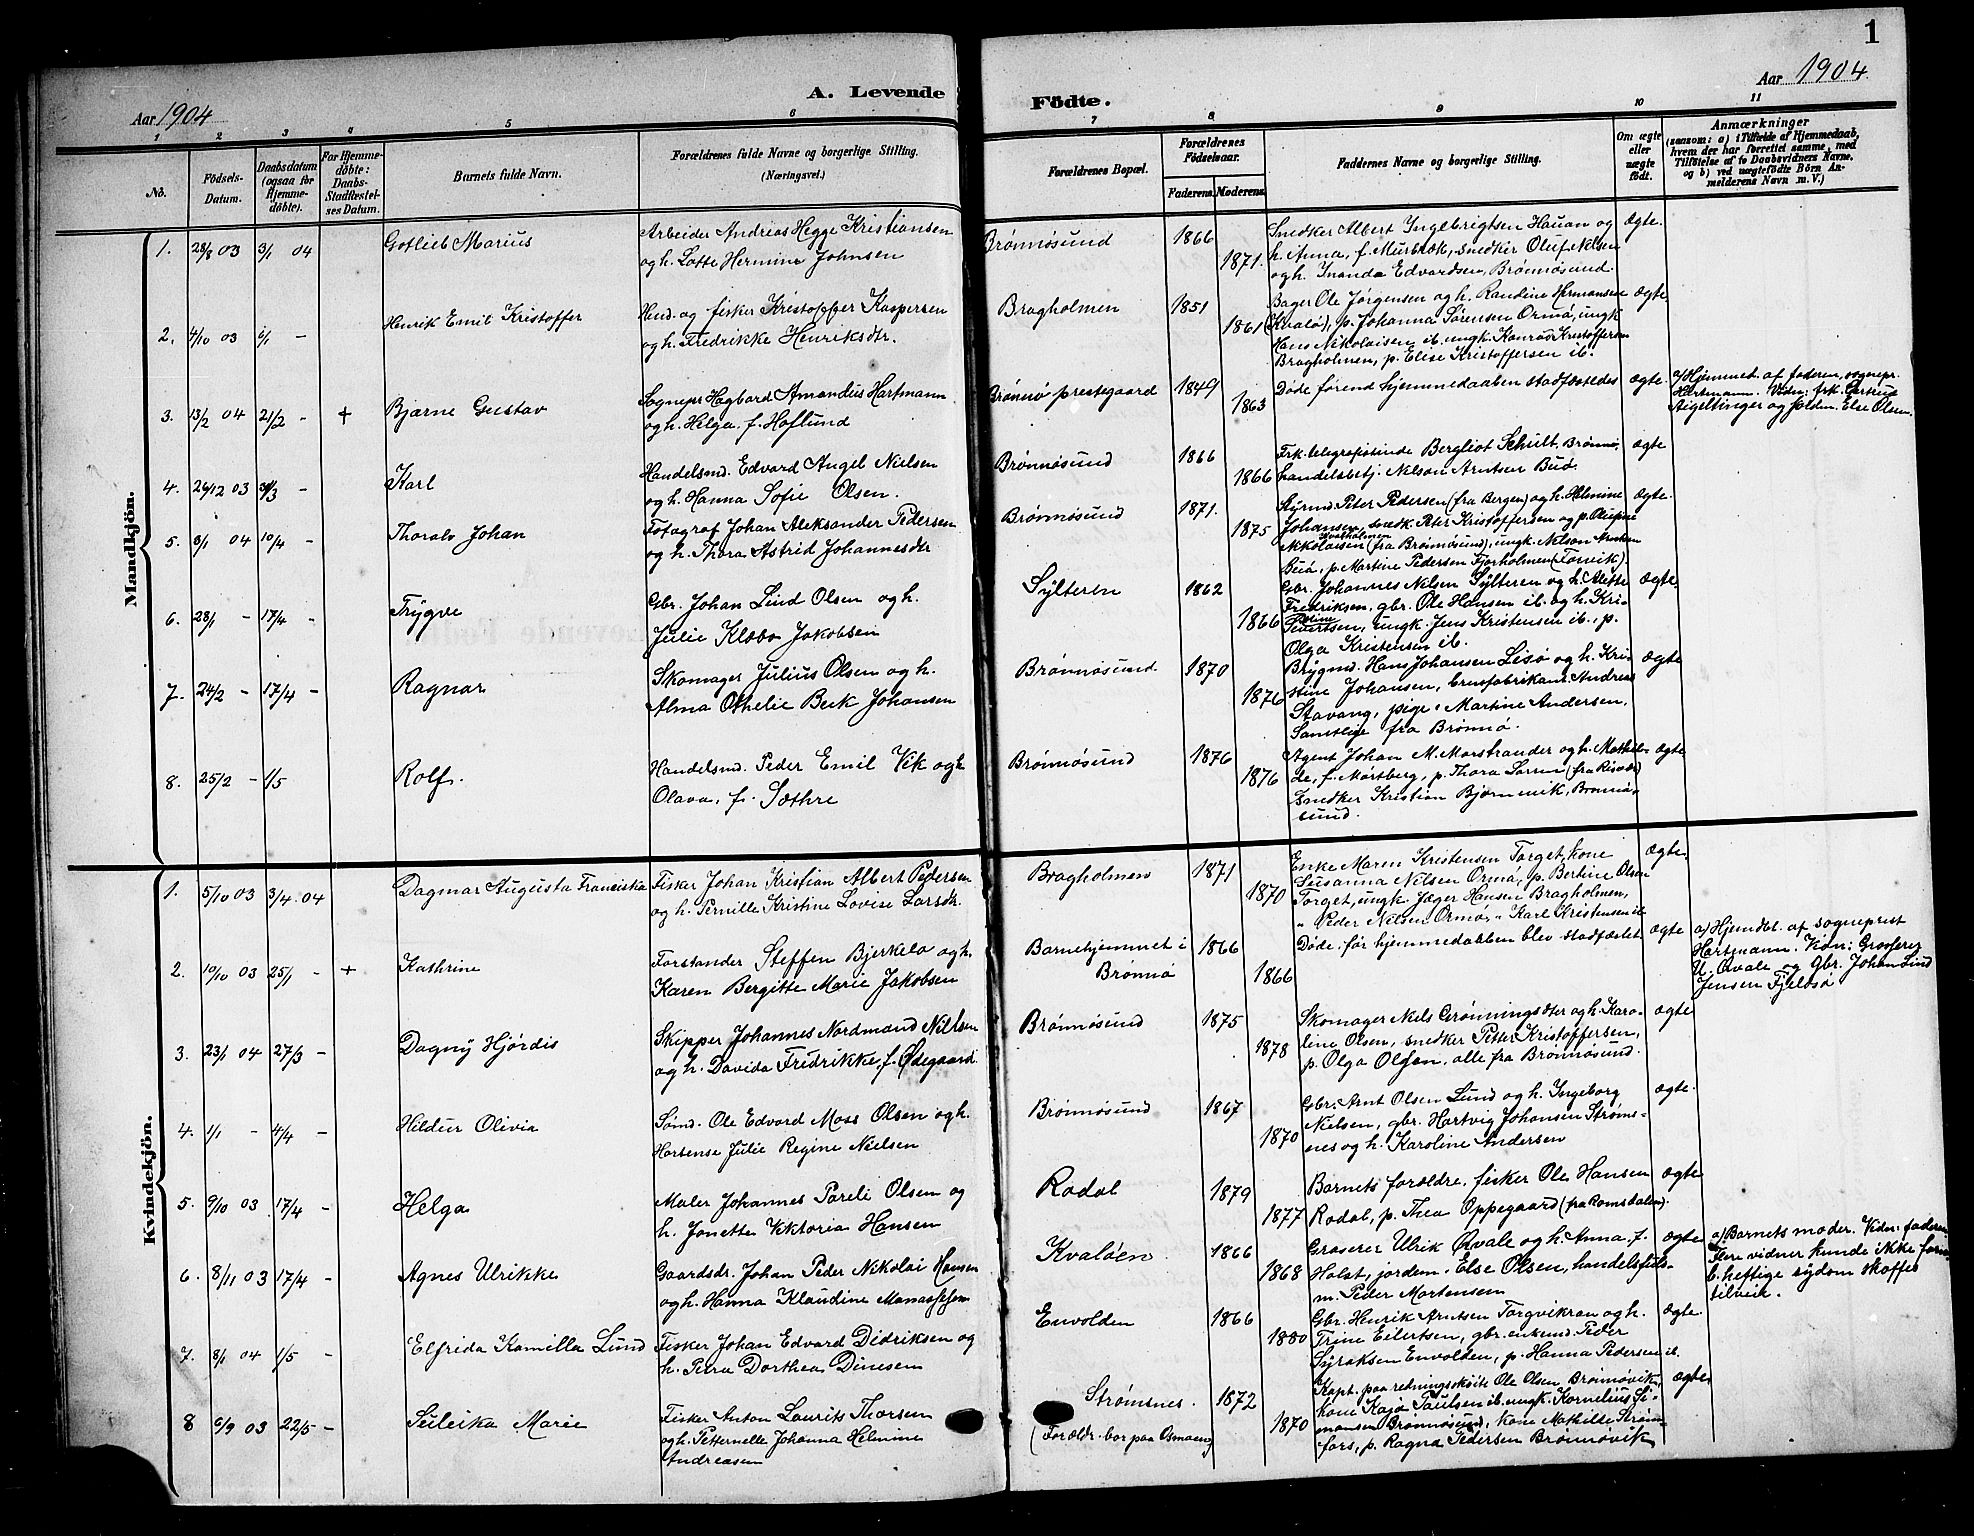 1
Aar 1904
A. Levende
Födte.
Aar 1904
1 2 3 4 5 6 7 8 9 10 11
No.
Födsels-
Datum.
Daabsdatum
(ogsaa for
Hjemme-
döbte).
For Hjemme-
döbte:
Daabs-
Stadfæstel-
ses Datum.
Barnets fulde Navn.
Forældrenes fulde Navne og borgerlige Stilling.
(Næringsvei.)
Forældrenes Bopæl.
Forældrenes
Födselsaar.
Faderens. Moderens.
Faddernes Navne og borgerlige Stilling.
Om ægte
eller
uægte
födt.
Anmærkninger
(saasom: a) i Tilfælde af Hjemmedaab,
hvem der har forrettet samme, med
Tilföielse af to Daabsvidners Navne,
og b) ved uægtefödte Börn An-
melderens Navn m. V.)
Mandkjön.
1. 28/8 03 3/1 04 Gotlieb Marius
Arbeider Andreas Hegge Kristiansen
og h. Lotte Hermine Johnsen
Brønnøsund 1866 1871.
Snedker Albert Ingebrigtsen Hauan og
h. Anna, f. Murbæk, snedker Oluf Nilsen
og h. Inanda Edvardsen, Brønnøsund.
ægte.
2. 4/10 03 6/1 - Henrik Emil Kristoffer
Hmd. og fisker Kristoffer Kaspersen
og h. Fredrikke Henriksdtr.
Bragholmen 1851 1861
Bager Ole Jørgensen og h. Randine Hermansen
(Kvalø), p. Johanna Sørensen Ormø, ungk
Hans Nikolaisen ib. ungk. Konrad Kristoffersen
Bragholmen, p. Elise Kristoffersen ib.
ægte
3. 13/2 04 21/2 - + Bjarne Gustav
Sognepr Hagbard Amandus Hartmann
og h. Helga, f. Hoflund
Brønnø prestegaard 1849 1863
Døde førend hjemmedaaben stadfæstedes
ægte.
a/ Hjemmed. af faderen, sognepr.
Hartmann. Vidn: frk. Gertrud
Aigeltinger og jordm. Else Olsen.
4. 26/12 03 3/3 - Karl
Handelsmd. Edvard Angel Nielsen
og h. Hanna Sofie Olsen.
Brønnøsund 1866 1866
Frk. telegrafistinde Bergliot Schult. Brønnø,
handelsbetj. Nelson Arntsen Buø.
ægte
5. 3/1 04 10/4 - Thoralv Johan
Fotograf Johan Aleksander Pedersen
og h. Thora Astrid Johannesdtr
Brønnøsund 1871. 1875
Styrmd Peter Pedersen (fra Bergen) og h. Helmine
Johansen, snedk. Peter Kristoffersen og p. Oluffine
Kvalholmen
Nikolaisen (fra Brønnøsund), ungk. Nelson Arntsen
Buø, p. Martine Pedersen Fjorholmen (Torvik).
ægte.
6. 28/1 - 17/4 - Trygve
Gbr. Johan Lind Olsen og h.
Julie Klæbo Jakobsen
Sylteren 1862 1866
Gbr. Johannes Nilsen Sylteren og h. Alette
Fredriksen, gbr. Ole Hansen ib. og h. Kri-
stine
Sivertsen, ungk. Jens Kristensen ib., p.
Olga Kristensen ib.
ægte.
7. 24/2 - 17/4 - Ragnar
Skomager Julius Olsen og h.
Alma Othelie Berk Johansen
Brønnøsund 1870 1876
Brygmd. Hans Johansen Lisø og h. Kri-
stine Johansen, brusfabrikant Andreas
Stavang, pige Martine Andersen,
Samtlige fra Brønnø.
ægte
8. 25/2 - 1/5 Rolf.
Handelsmd. Peder Emil Vik og h
Olava, f. Sæthre
Brønnøsund 1876 1876
Agent Johan M. Marstrander og h. Mathil-
de, f. Mørtberg, p. Thora Sørrn (fra Risvær)
Snedker Kristian Bjørnvik, Brønnø-
sund.
ægte
Kvindekjön.
1. 5/10 03 3/4 04 Dagmar Augusta Franciska
Fisker Johan Kristian Albert Pedersen
og h. Pernille Kristine Lovise Larsdtr.
Bragholmen 1871 1870
Enke Maren Kristensen Torget, kone
Susanna Nilsen Ormø, p. Bertine Olsen
Torget, ungk. Jæger Hansen Bragholmen,
" Peder Nilsen Ormø, " Karl Kristensen ib
ægte.
2. 10/10 03 25/1 - + Kathrine
Forstander Steffen Bjerkelo og h.
Karen Bergitte Marie Jakobsen
Barnehjemmet i
Brønnø 1866 1866
Døde før hjemmedaaben blev stadfæstet
ægte
a) Hjemdbt. af sogneprest
Hartmann. Kon: Grosserer
U. Qvale og Gbr. Johan Lind
Jensen Fjeldsø
3. 23/1 04 27/3 - Dagny Hjørdis
Skipper Johannes Nordmand Nilsen
og h. Davida Fredrikke, f. Ødegaard
Brønnøsund 1875 1878
Skomager Niels Grønningsæter og h. Karo-
line Olsen, snedker Petter Kristoffersen,
p. Olga Olsen, alle fra Brønnøsund.
ægte
4. 1/1 - 4/4 - Hildur Olivia
Sømd. Ole Edvard Moss Olsen og h.
Hortense Julie Regine Nielsen
Brønnøsund 1867 1870
Gbr. Arnt Olsen Lund og h. Ingeborg
Nielsen, gbr. Hartvig Johansen Strøms-
nes og h. Karoline Andersen
ægte.
5. 9/10 03 17/4 - Helga
Maler Johannes Pareli Olsen og
h. Jonette Viktoria Hansen
Rodal 1879 1877
Barnets forældre, fisker Ole Hansen
Rodal, p. Thea Oppegaard (fra Romsdalen).
ægte
6. 8/11 03 17/4 - Agnes Ulrikke
Gaardsdr. Johan Peder Nikolai Hansen
og h. Hanna Klaudine Manassesen
Kvaløen 1866 1868
Groserer Ulrik Qvale og h. Anna, f.
Holst, jordem. Else Olsen, handelsfuld-
m. Peder Mortensen
ægte
a) Barnets moder. Vidn: faderen.
Flere vidner kunde ikke form.
b. heftige sydom skaffes
tilveie.
7. 8/1 04 1/5 - Elfrida Kamilla Lund
Fisker Johan Edvard Didriksen og
h. Petra Dorthea Dinesen
Envolden 1866 1880
Gbr. Henrik Arntsen Torgvikran og h.
Trine Eilertsen, gbr. enkemd Peder
Syraksen Envolden, p. Hanna Pedersen ib.
ægte.
8 9/9 03 22/5 - Seileika Marie
Fisker Anton Laurits Thorsen
og h. Petternelle Johanna Helmine
Andreasen
Strømsnes.
(Forældr. bor paa Osmoen)
1872 1870
Kapt. paa redningskøite Ole Olsen Brønnøvik,
kone Kaja Paulsen ib. ungk. Kornelius Si-
monsen Brønnøsund, kone Mathilde Strøm-
fors, p. Ragna Pedersen Brønnøvik
ægte.